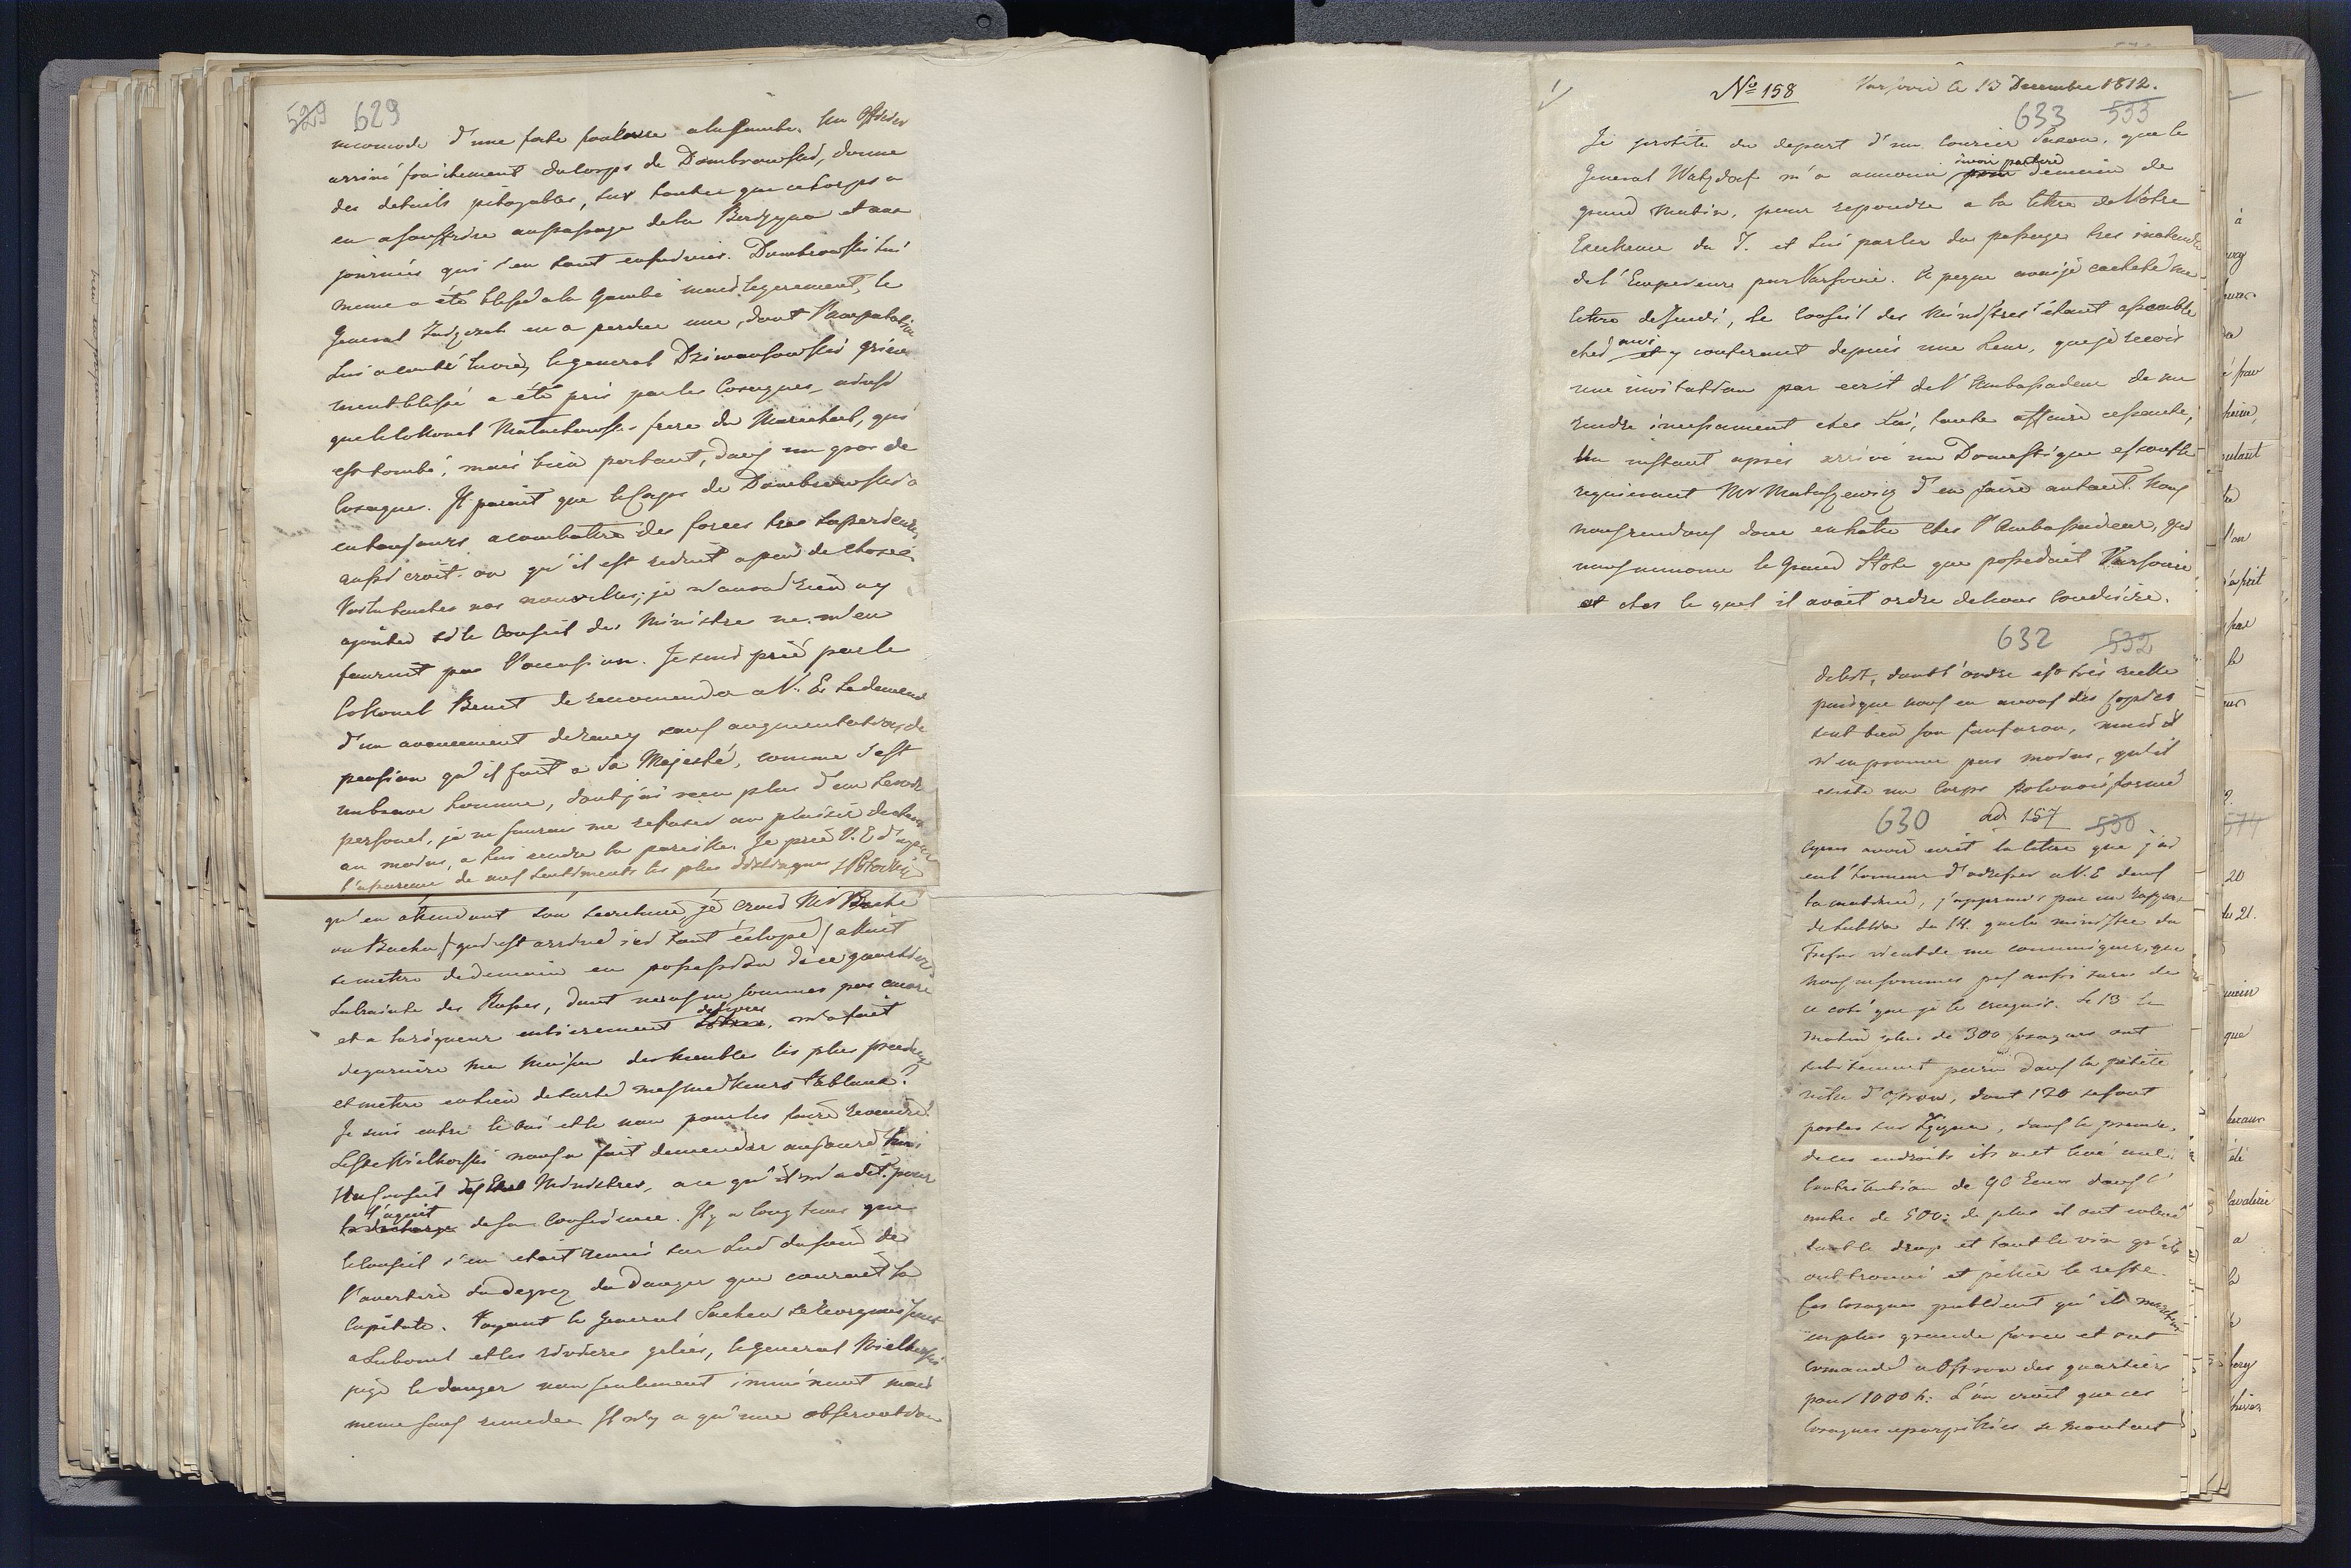 529 629
incomode d'une forte foulure a la jambe. Un Officier
arrivé fraichement du corps de Dombrowski, donne
des details pitoyables, sur toutce que ce Corps a
eu a souffrire au passage de la Berezyna et aux
journées qui s'en sont ensuivies. Dombrowski lui
meme a été blessé a la jambe mais legerement, le
General en a perdue une, dont l'amputation
lui a couté la vie, le general Dziewanowski grieve
ment blessé a été pris par les Cosaques, ainsi
que le Colonel Malachowski frere du Marechal, qui
est tombé, mais bien portant, dans un gros de
Cosaques. Il parait que le Corps de Dombrowski a
eu toujours a combattre des forces tres superieures
aussi croit-on qu'il est reduit a peu de chose.
Voila toutes nos nouvelles; je n'aurai rien a y
ajouter si le Conseil des Ministre ne m'en
fournit pas l'occasion. Je suis prié par le
Colonel Benet de recomender a V. E. la demande
d'un avancement de rang sans augmentation de
pension qu'il fait a Sa Majesté, comme c'est
un brave homme, dont j'ai reçu plus d'un service
personel, je ne saurai me refuser au plaisir de lui
au moins, a lui rendre la pareille. Je prie V. E d'agreer
l'assurance de mes sentiments les plus distingués SPotocki
qu'en attendant son secretaire, je crois Mr
ou Bacher (qui est arrivé ici tout éclopé) allait
se metre dedemain en possession de ce quartier
La crainte des Russes, dont nous ne sommes pas encore
et a la rigueur entierement delivres, m'a fait
degarnire ma maison des meubles les plus precieux
et metre en lieu de sureté mes meilleurs tableaux.
Je suis entre le oui et le non pour les faire revenire.
Le Gl Wielhorski nous a fait demander aujourd'hui
un Conseil des Ministres, a ce qu'il m'a dit pour
l'aquit de sa Consience. Il y a long tems que
le Conseil s'en etait remis sur lui du soin de
l'avertire du degrez du danger que courrait la
Capitale. Voyant le General Sacken
a Lubomel et les rivieres gelées, le general Wielhorski
juge le danger non seulement imminent mais
meme sans remede. Il n'y a qu'une observation
No 158 Varsovie le 13 Decembre 1812.
633 533
Je profite du depart d'un courier Saxon, que le
General Watzdorf m'a annoncé devoir partire demain de
grand matin, pour repondre a la lettre de Votre
Excellence du 7. et lui parler du passage tres inatendu
de l'Empereur par Varsovie. A peine avais-je cacheté ma
lettre de Jeudi, le Conseil des Ministres étant assemblé
chez moi et y conferant depuis une heure, que je recois
une invitation par ecrit de l'Ambassadeur de me
rendre incessament chez lui, toute affaire cessante,
Un instant après arrive un Domestique essouflé
requierant Mr Matuszewicz d'en faire autant. Nous
nous rendons donc en hate chez l'Ambassadeur, qui
nous annonce le Grand Hote que possedait Varsovie
et chez le quel il avait ordre de nous conduire.
632 532
puisque nous en avons des copies
sent bien son fanfaron, mais il
n'en prouve pas moins, qu'il
existe un Corps Polonois formé
630 ad 157 530
Apres avoir ecrit la lettre que j'ai
eu l'honneur d'adresser a V. E dans
la matinée, j'apprens par un rapport
de Lublin du 18. que le ministre du
Tresor vient de me communiquer, que
nous ne sommes pas aussi surs de
ce coté que je le croyais. Le 13 le
matin plus de 300 cosaques ont
subitement paru dans la petite
ville d'Ostrow, dont 120 se sont
portés sur, dans le premier
de ces endroits ils ont levé une
Contribution de 90 Ecus dans l'
autre de 500: de plus il ont enlevé
tout le drap et tout le vin qu'ils
ont trouvé et pillié le reste.
Ces cosaques publient qu'ils marchent
en plus grande force et ont
comandé a Ostrow des quartiers
pour 1000 h: L'on croit que ces
Cosaques eparpillées se montent